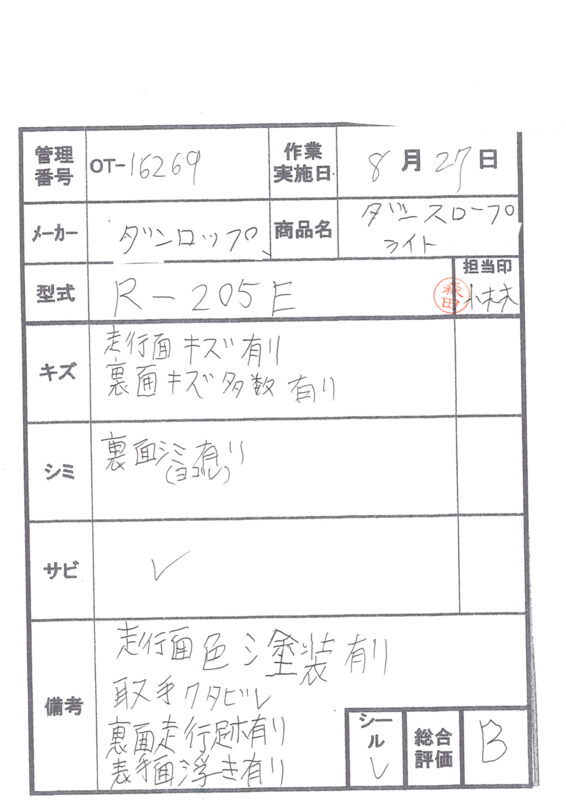 管理番号 OT-16269 作業実施日 8月27日
メーカー ダンロップ 商品名 ダンスロープ
ライト
型式 R-205E 担当印
森田 小林
キズ 走行面キズ有り
裏面キズ多数有り
シミ 裏面シミ有り
(ヨゴレ)
サビ レ
備考 走行面色シ塗装有り
取手クタビレ
裏面走行跡有り
表面浮き有り
シール レ 総合評価 B